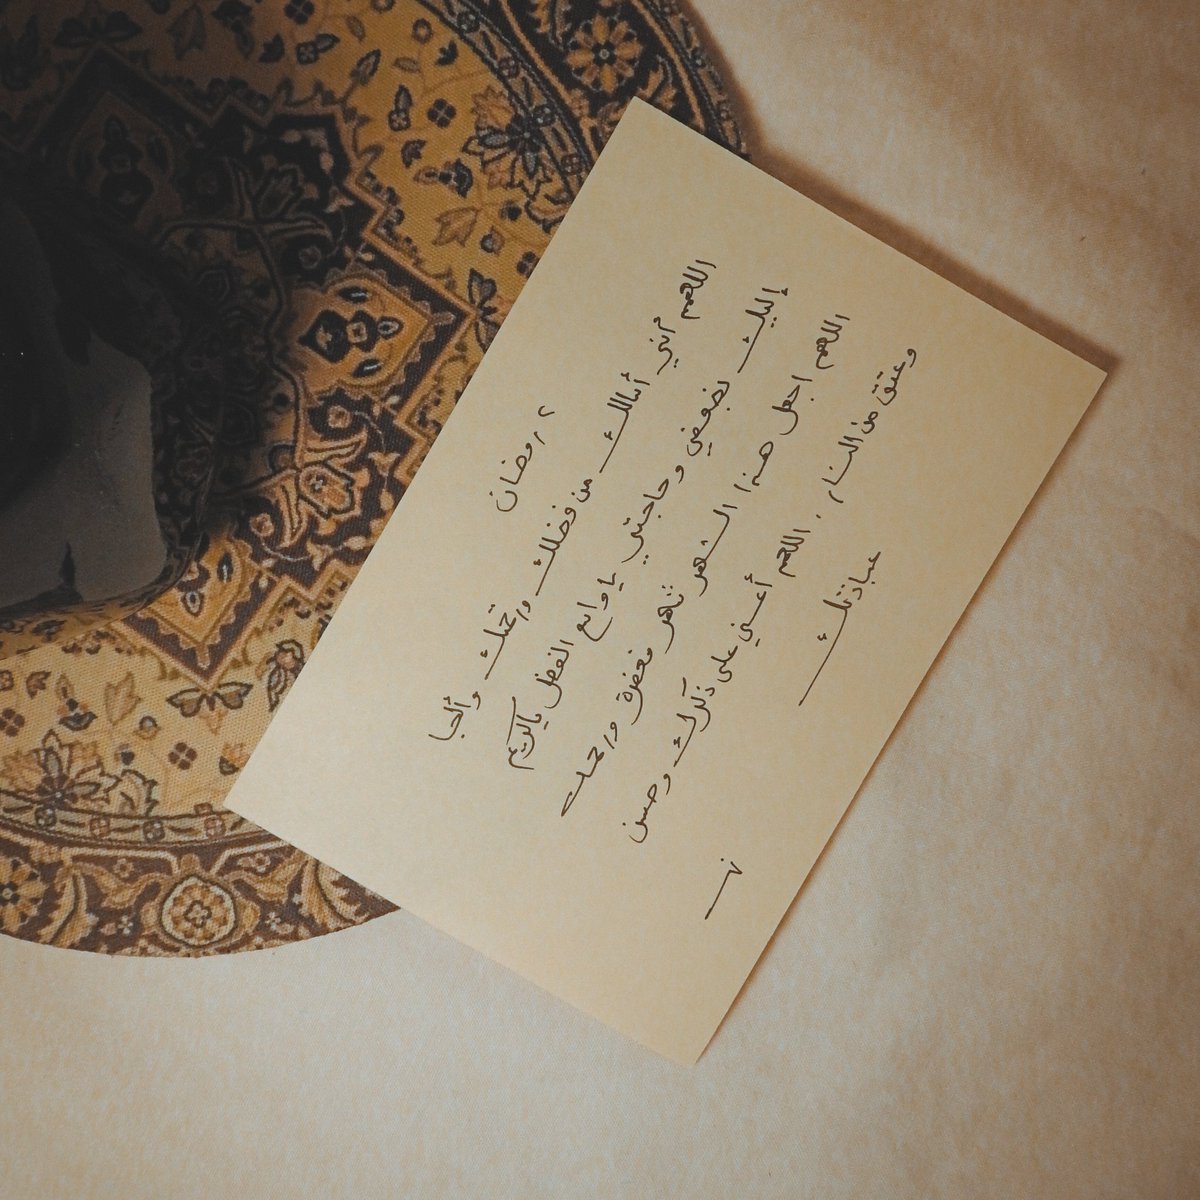 ٢ رمضان
اللهم أني أسالك من فضلك ورحمتك وألجا
إليك بضعفي وحاجتي يا واسع الفضل ياكريم
اللهم اجعل هذا الشهر شهر مغفرة ورحمة
وعتق من النار . اللهم أعني على ذكرك وحسن
عبادتك